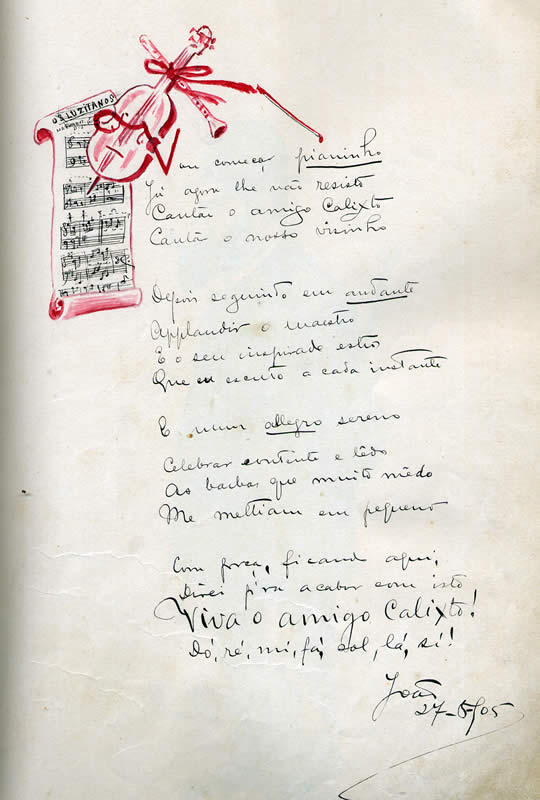 OS LUZITANOS
Vou começar pianinho
Já agora lhe não resisto
Cantar o amigo Calixto
Cantar o nosso visinho
Depois seguindo em andante
Applaudir o maestro
E o seu inspirado estro
Que eu escuto a cada instante
E num allegro sereno
Celebrar contente e lêdo
As barbas que muito mêdo
Me mettiam em pequeno
Com força, ficando aqui,
Direi p'ra acabar com isto
Viva o amigo Calixto!
Dó, ré, mi, fá, sol, lá, si!
João
27-5-/905